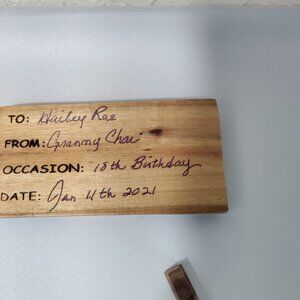 TO: Hailey Rae
FROM: Granny Char
OCCASION: 18th Birthday
DATE: Jan 11th 2021